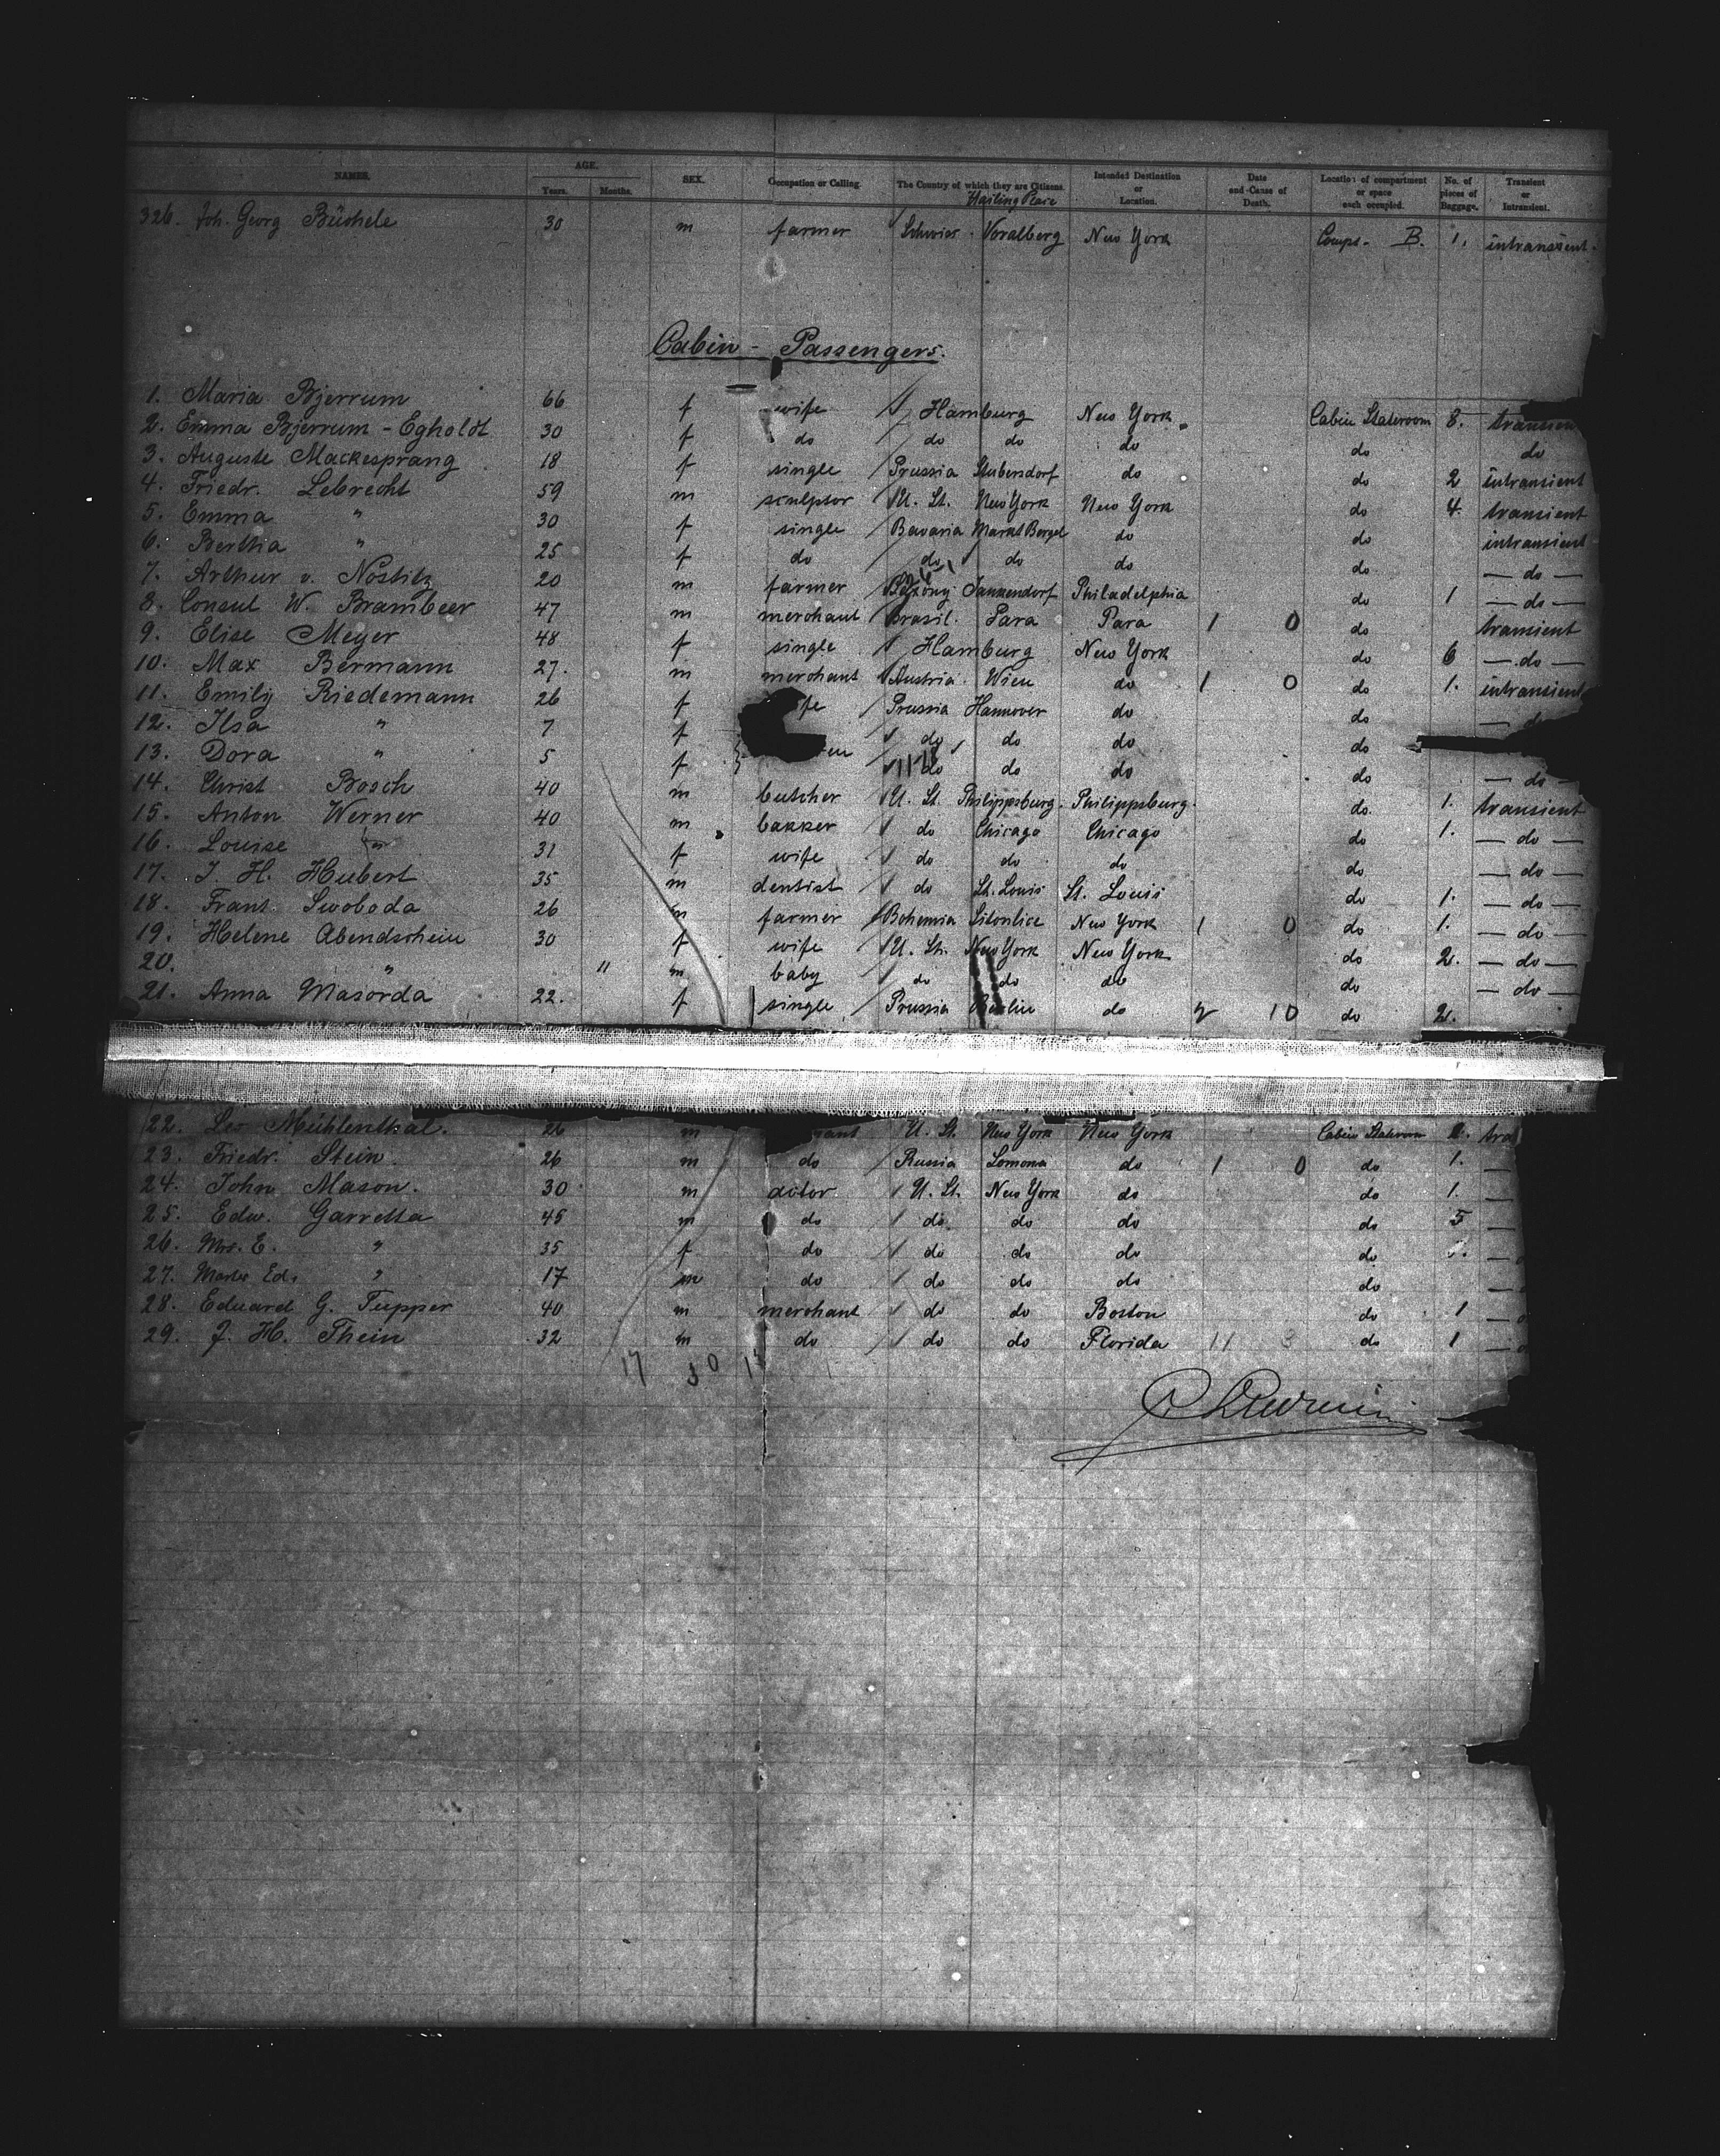 NAMES. AGE. Years. Months. SEX. Occupation or Calling. The Country of which they are Citizens. Hailing Place Intended Destination or Location. Date and Cause of Death. Location of compartment or space each occupied. No. of pieces of Baggage. Transient or Intransient.
326. Joh. Georg Büchele 30 m farmer Voralberg New York Comps. B. 1. intransient.
Cabin - Passengers.
1. Maria Bjerrum 66 f wife Hamburg New York Cabin Stateroom 8. transien
2. Emma Bjerrum - Egholdt 30 f do do do do do do
3. Auguste Mackesprang 18 f single Prussia Stubendorf do do 2 intransient
4. Friedr. Lebrecht 59 m sculptor U. St. New York New York do 4. transient
5. Emma " 30 f single Bavaria Markt Bergel do do intransient
6. Bertha " 25 f do do do do do — do —
7. Arthur v. Nostitz 20 m farmer Saxony Philadelphia do 1 — do —
8. Consul W. Brambeer 47 m merchant Brasil. Para Para 1 0 do transient
9. Elise Meyer 48 f single Hamburg New York do 6 — do —
10. Max Bermann 27. m merchant Austria Wien do 1 0 do 1. intransient
11. Emily Riedemann 26 f fe Prussia Hannover do do — do
12. Ilsa " 7 f do do do do
13. Dora " 5 f en do do do do — do
14. Christ Bosch 40 m butcher U. St. Philippsburg. Philippsburg. do. 1. transient
15. Anton Werner 40 m bakker do Chicago Chicago do 1. — do —
16. Louise " 31 f wife do do do do — do —
17. J. H. Hubert 35 m dentist do St. Louis St. Louis do 1. — do —
18. Frant. Swoboda 26 m farmer Bohemia New York 1 0 do 1. — do —
19. Helene Abendschein 30 f wife U. St. New York New York do 2. — do —
20. " 11 m baby do do do do — do —
21. Anna Masorda 22. f single Prussia Berlin do 10 do 2.
22. Leo Mühlenthal. 26 m hant U. St. New York New York Cabin Stateroom tra
23. Friedr. Stein 26 m do Russia Lomona do 1 0 do 1. —
24. John Mason. 30 m actor U. St. New York do do 1. —
25. Edw. Garretta 45 m do do do do do 5 —
26. Mrs. E. " 35 f do do do do do —
27. Master Ed. " 17 m do do do do do —
28. Eduard G. Tupper 40 m merchant do do Boston do 1 —
29. J. H. Thein 32 m do do do Florida 11 3 do 1 —
17 30